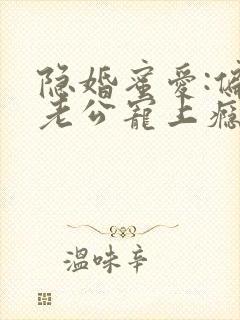 隐婚蜜爱:偏
老公宠上瘾
温味辛